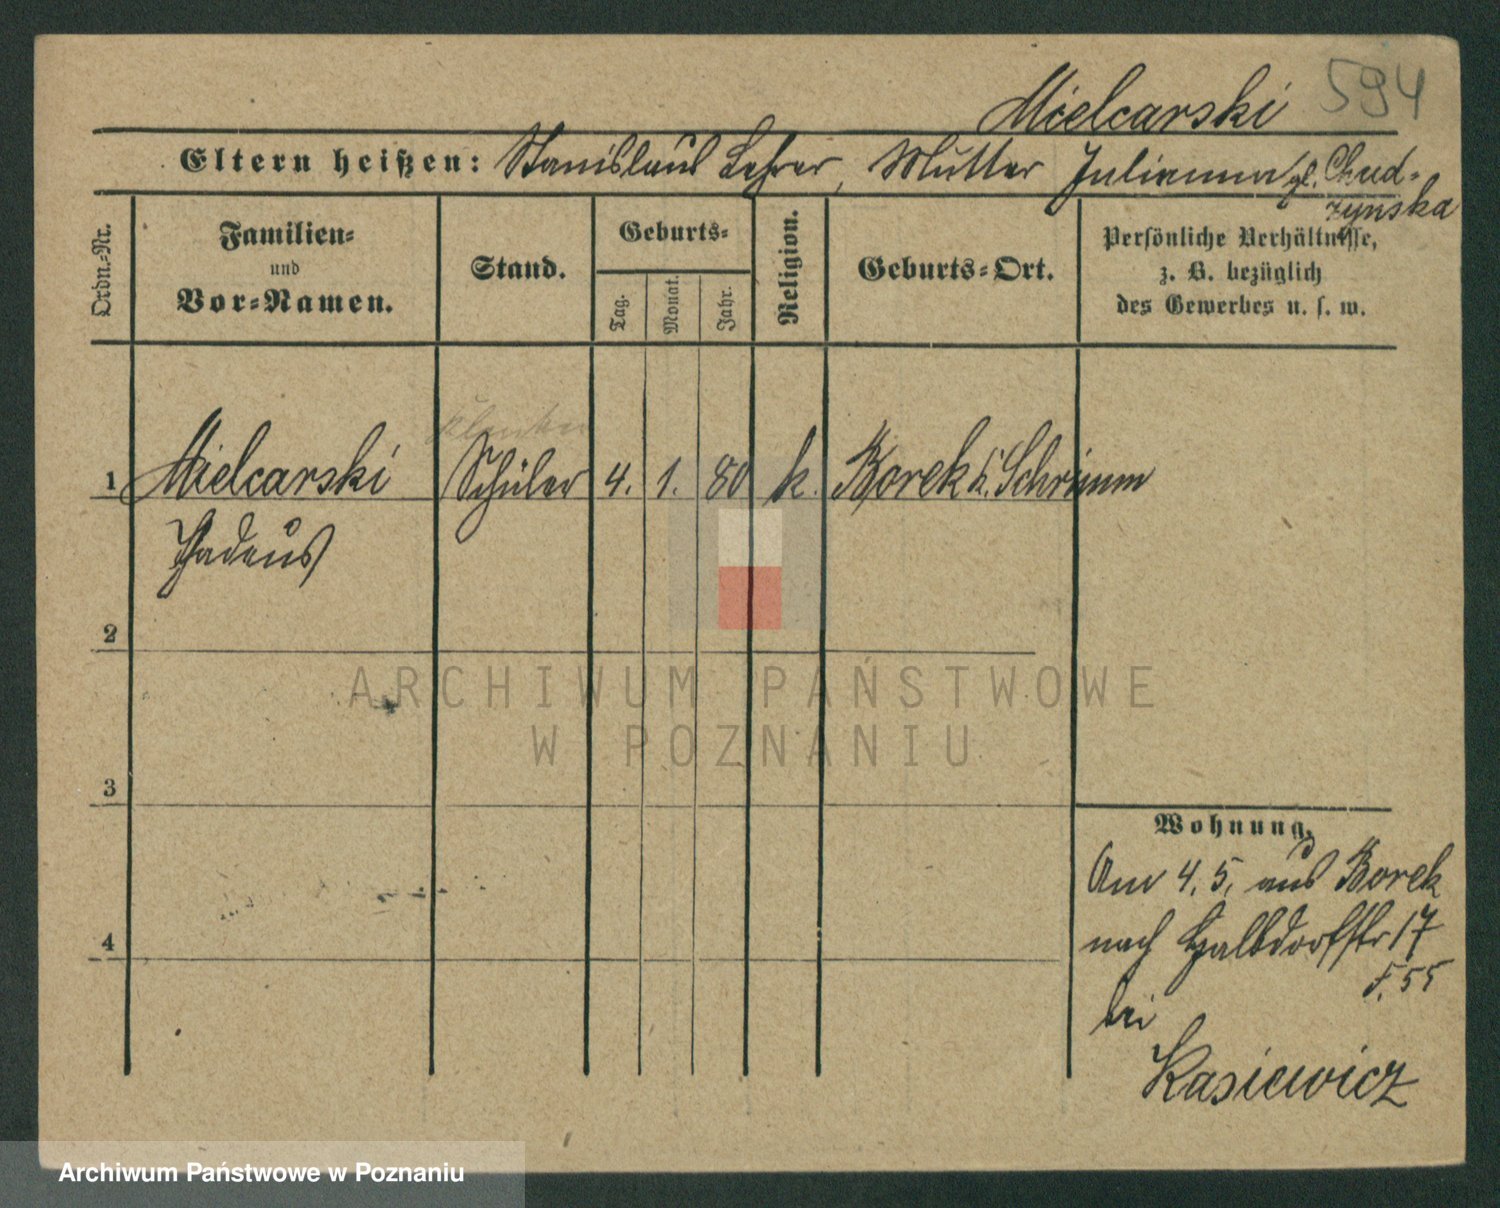 594
Mielcarski
Eltern heißen: Stanislaus Lehrer, Mutter Julianna gb. Chud-
zynska
Ordn.-Nr.
Familien-
und
Vor-Namen.
Stand.
Geburts-
Tag.
Monat.
Jahr.
Religion.
Geburts-Ort.
Persönliche Verhältnisse,
z. B. bezüglich
des Gewerbes u. s. w.
1 Mielcarski Schüler 4. 1. 80 k. Borek k. Schrimm
Thadeus
2
ARCHIWUM PAŃSTWOWE
W POZNANIU
3
Wohnung.
Am 4. 5. aus Borek
nach Halbdorfstr 17
F. 55
4
bei
Kasiewicz
Archiwum Państwowe w Poznaniu